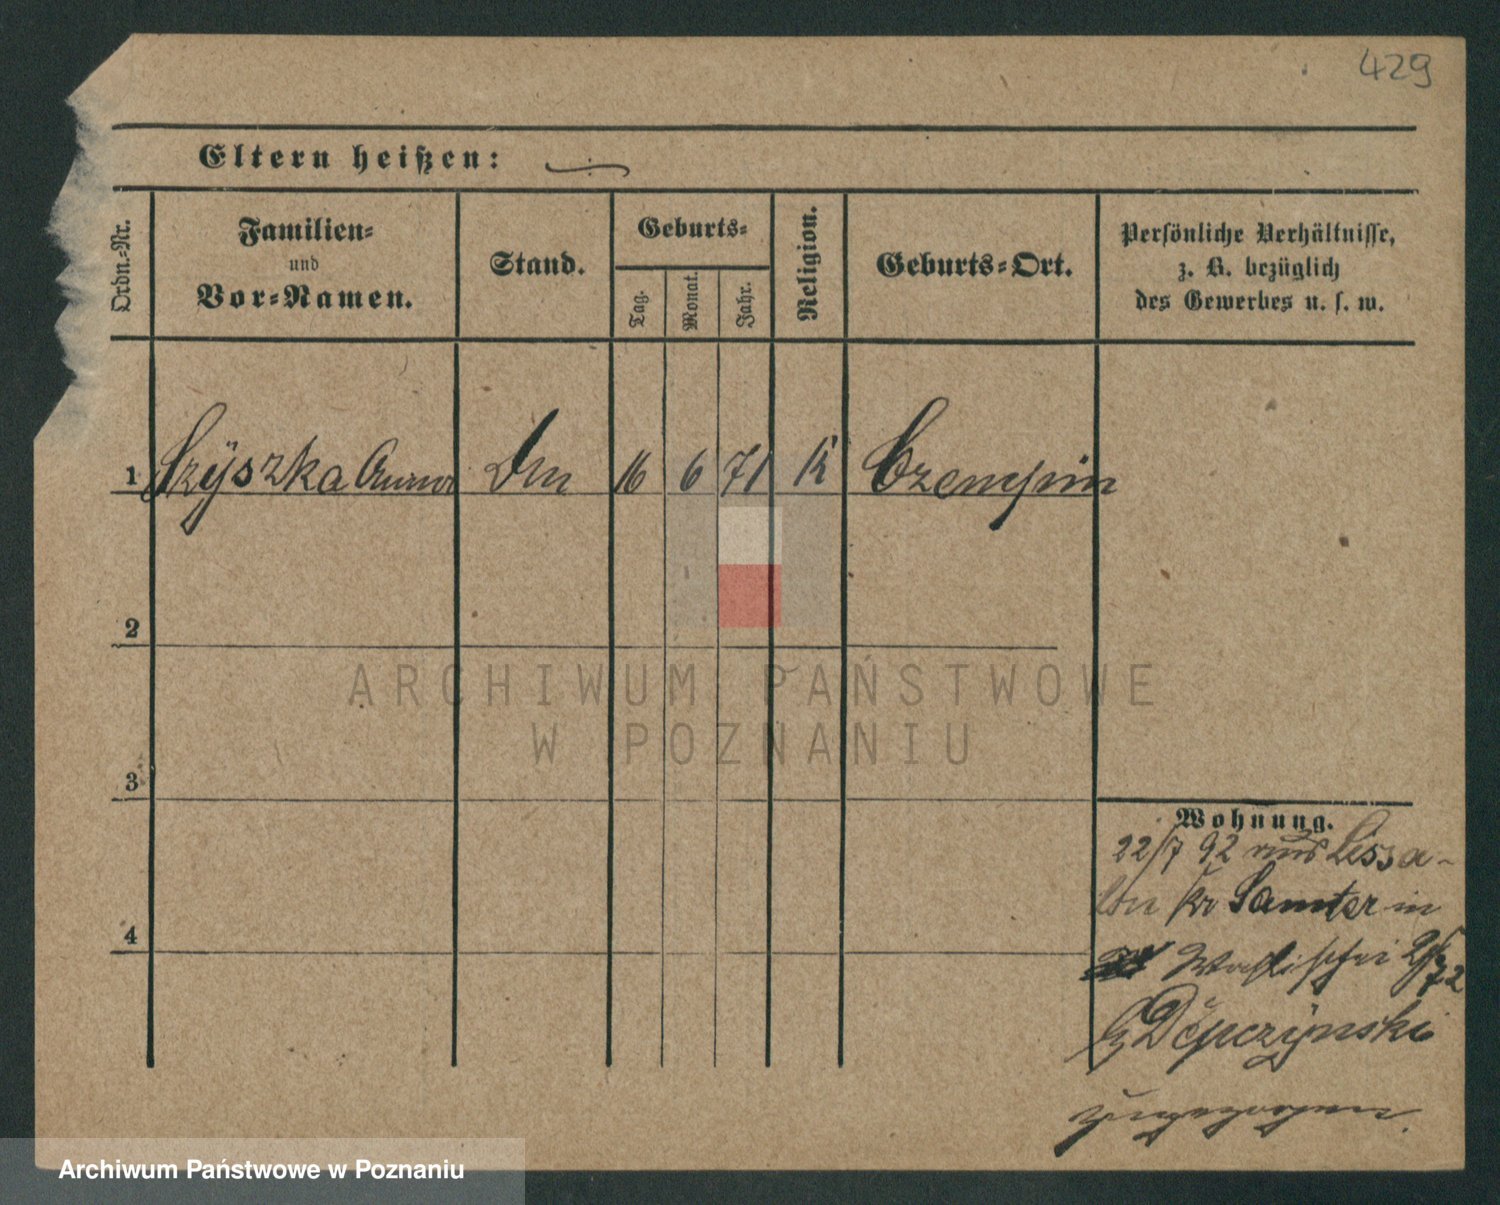 429
Eltern heißen:
Ordn.-Nr.
Familien-
und
Vor-Namen.
Stand.
Geburts-
Tag.
Monat.
Jahr.
Religion.
Geburts-Ort.
Persönliche Verhältnisse,
z. B. bezüglich
des Gewerbes u. s. w.
1 Szÿszka Anna 16 6 71 K Czempin
2
3
4
Wohnung.
22/7 92 aus Lissa-
Samter in
Wallischei 2/72
zugezogen.
ARCHIWUM PAŃSTWOWE
W POZNANIU
Archiwum Państwowe w Poznaniu